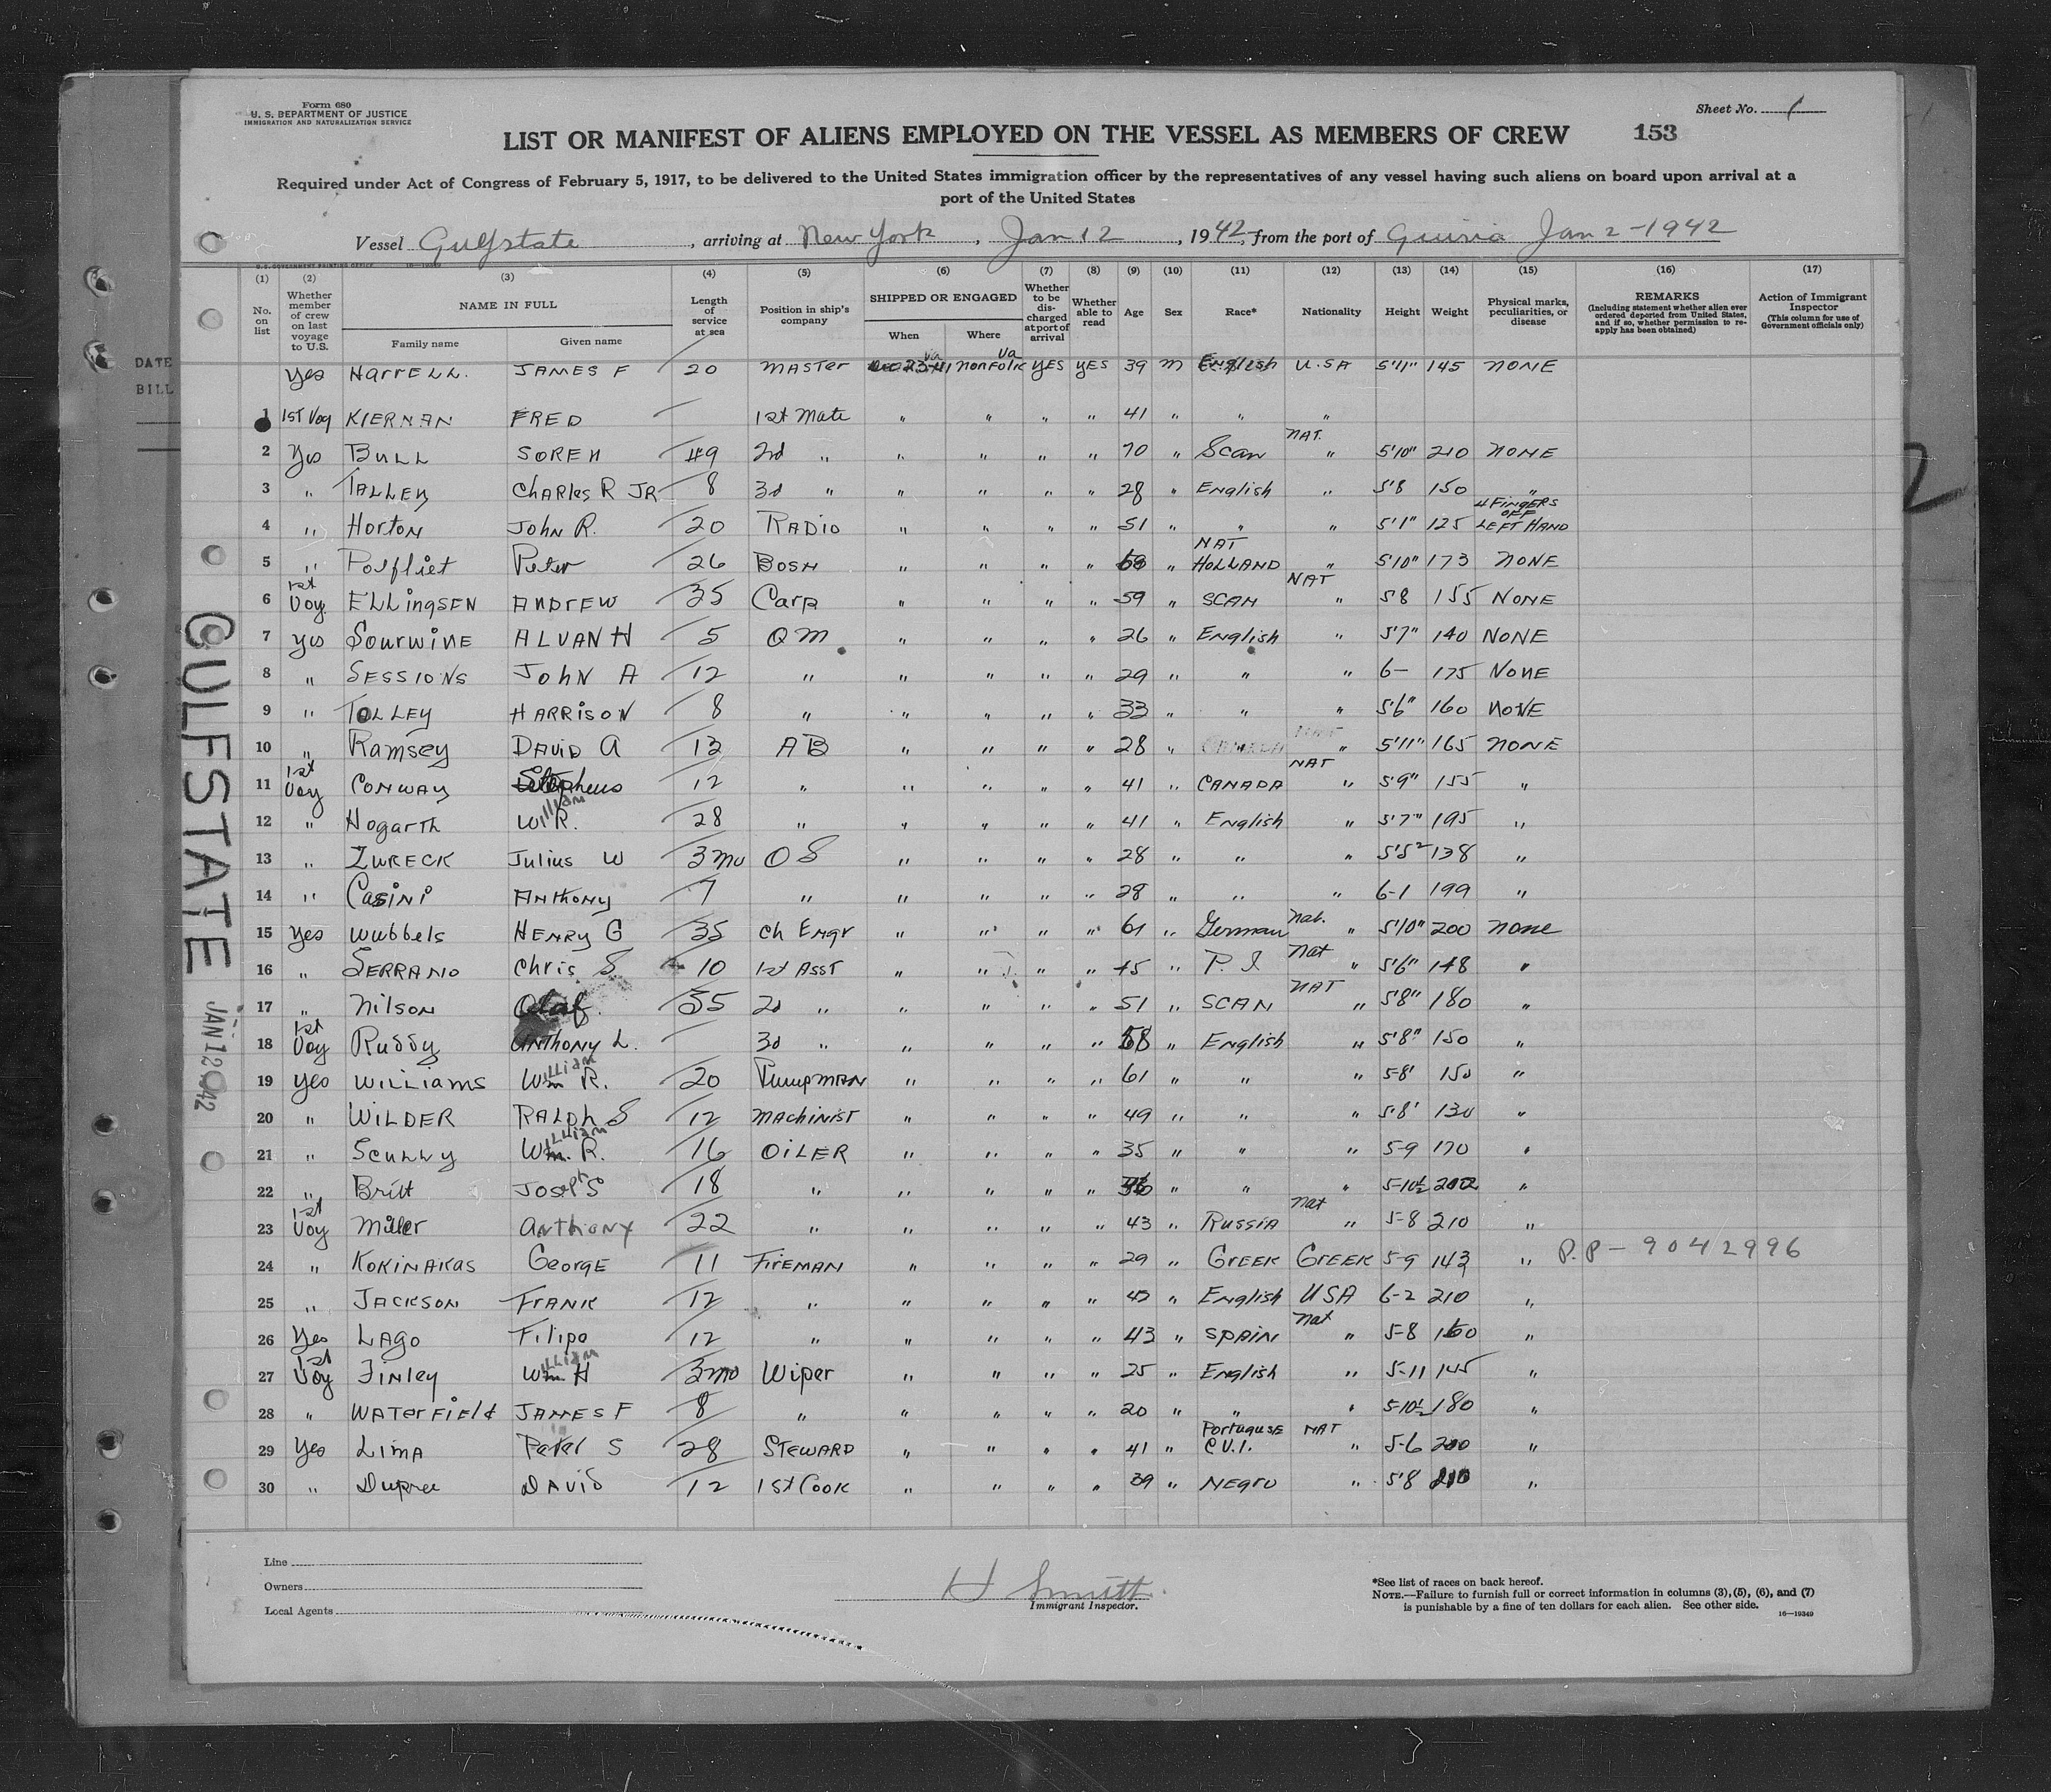 Form 680
U. S. DEPARTMENT OF JUSTICE
IMMIGRATION AND NATURALIZATION SERVICE
Sheet No. 1
LIST OR MANIFEST OF ALIENS EMPLOYED ON THE VESSEL AS MEMBERS OF CREW 153
Required under Act of Congress of February 5, 1917, to be delivered to the United States immigration officer by the representatives of any vessel having such aliens on board upon arrival at a
port of the United States
Vessel Gulfstate, arriving at New York, Jan 12, 1942, from the port of Guiria Jan 2-1942
(1) (2) (3) (4) (5) (6) (7) (8) (9) (10) (11) (12) (13) (14) (15) (16) (17)
No. on list
Whether member of crew on last voyage to U.S.
NAME IN FULL
Family name
Given name
Length of service at sea
Position in ship's company
SHIPPED OR ENGAGED
When
Where
Whether to be discharged at port of arrival
Whether able to read
Age
Sex
Race*
Nationality
Height
Weight
Physical marks, peculiarities, or disease
REMARKS
(Including statement whether alien ever ordered deported from United States, and if so, whether permission to reapply has been obtained)
Action of Immigrant Inspector
(This column for use of Government officials only)
DATE
BILL
Yes HARRELL. JAMES F 20 MASTER Norfolk Va YES YES 39 M English U.S.A 5'11" 145 NONE
1 1ST Voy KIERNAN FRED 1st Mate " " " " 41 " " "
2 Yes BULL SOREN 49 2nd " " " " " 70 " Scan NAT. " 5'10" 210 NONE
3 " TALLEY CHARLES R JR 8 3d " " " " " 28 " English " 5'8 150 "
4 " Horton John R. 20 RADIO " " " " 51 " " " 5'1" 125 4 FINGERS OFF LEFT HAND
5 " Polfliet Peter 26 BOSN " " " " " NAT HOLLAND " 5'10" 173 NONE
6 1st Voy ELLingSEN ANDREW 35 Carp " " " " 59 " SCAN NAT " 5'8 155 NONE
7 yes Sourwine ALVAN H 5 QM " " " " 26 " English " 5'7" 140 NONE
8 " SESSIONS JOHN A 12 " " " " " 29 " " " 6- 175 NONE
9 " TOLLEY HARRISON 8 " " " " " 33 " " " 5'6" 160 NONE
10 " Ramsey DAVID A 13 AB " " " " 28 " " 5'11" 165 NONE
11 1st Voy CONWAY Stephens 12 " " " " " 41 " CANADA NAT " 5'9" 155 "
12 " Hogarth William R. 28 " " " " " 41 " English " 5'7" 195 "
13 " ZWRECK Julius W 3 mo OS " " " " 28 " " " 5'5" 138 "
14 " Casini Anthony 7 " " " " " 28 " " " 6-1 199 "
15 yes Wubbels HENRY G 35 Ch Engr " " " " 61 " German Nat. " 5'10" 200 none
16 " SERRANO Chris S 10 1st ASST " " " " 45 " P. I Nat " 5'6" 148 "
17 " Nilson Olaf. 35 2d " " " " " 51 " SCAN NAT " 5'8" 180 "
18 1st Voy Russy Anthony L. 3d " " " " " 58 " English " 5'8" 150 "
19 yes WILLIAMS William R. 20 PumpMAN " " " " 61 " " " 5-8' 150 "
20 " WILDER RALph S 12 MACHINIST " " " " 49 " " " 5-8' 130 "
21 " Scully William R. 16 OILER " " " " 35 " " " 5-9 170 "
22 " Britt Joseph S 18 " " " " " " " " 5-10½ 202 "
23 1st Voy Miller Anthony 22 " " " " " 43 " RUSSIA Nat " 5-8 210 "
24 " KOKINAKAS George 11 FIREMAN " " " " 29 " GREEK GREEK 5-9 143 " P.P - 9042996
25 " JACKSON FRANK 12 " " " " " 45 " English USA 6-2 210 "
26 Yes LAGO Filipo 12 " " " " " 43 " SPAIN Nat " 5-8 160 "
27 1st Voy Finley William H 3 mo Wiper " " " " 25 " English " 5-11 145 "
28 " WATERFIELd JAMES F 8 " " " " " 20 " " " 5-10½ 180 "
29 Yes LIMA Peter S 28 STEWARD " " " " 41 " Portuguse C.V.I. NAT " 5-6 200 "
30 " Dupree DAVID 12 1st COOK " " " " 39 " NEGRO " 5'8 210 "
GULFSTATE
JAN 12 1942
2
Line
Owners
Local Agents
H Smith
Immigrant Inspector.
*See list of races on back hereof.
NOTE.—Failure to furnish full or correct information in columns (3), (5), (6), and (7)
is punishable by a fine of ten dollars for each alien. See other side.
16—19349